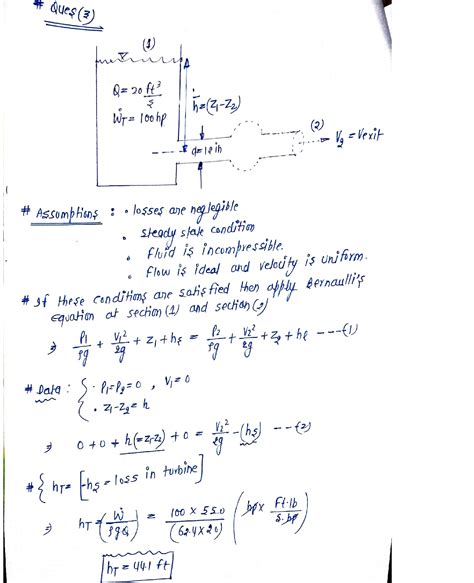 # Ques(3)
(1)
Q = 20 ft³/s
ẆT = 100hp
h=(z₁-z₂)
d=12in
(2)
V₂ = Vexit
# Assumptions : • losses are neglegible
• steady state condition
• Fluid is incompressible.
• Flow is ideal and velocity is uniform.
# If these conditions are satisfied then apply Bernaulli's
Equation at section(1) and section(2)
⇒ P₁/ρg + V₁²/2g + z₁ + hs = P₂/ρg + V₂²/2g + z₂ + hl ---(1)
# Data : { • P₁=P₂=0 , V₁=0
• z₁-z₂ = h
⇒ 0+0+h(=z₁-z₂)+0 = V₂²/2g -(hs) --(2)
# { hT = [-hs = loss in turbine]
⇒ hT = (Ẇ/ρgQ) = 100 × 550/(62.4×20) (hp × Ft·lb/s·hp)
hT = 44.1 ft